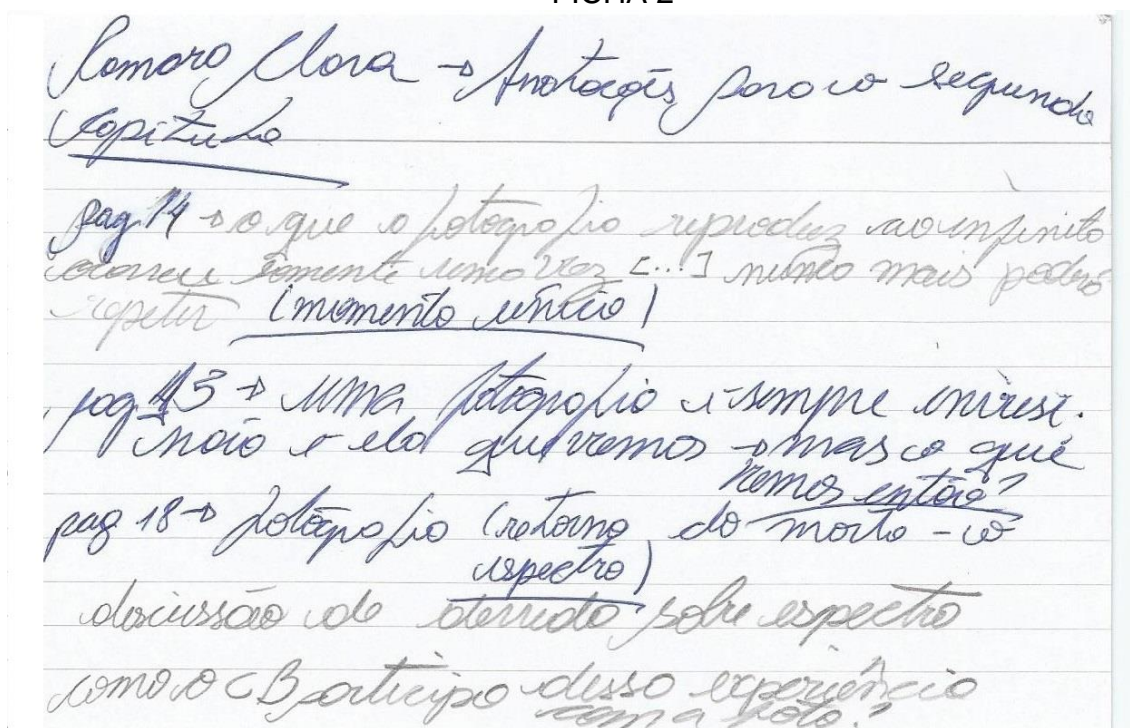 FICHA 2
Camara Clara → Anotações para o segundo
Capítulo
pag. 14 → o que a fotografia reproduz ao infinito
ocorreu somente uma vez [...] nunca mais poderá
repetir (momento único)
pag 13 → uma fotografia é sempre invisí.
não é ela que vemos → mas o que
vemos então?
pag 18 → fotografia (retorno do morto - o
espectro)
discussão de derrida sobre espectro
como o CB participa dessa experiência
com a foto?